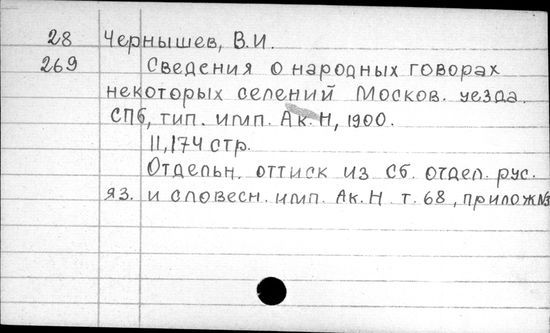 28 Чернышев, В.И.
269 Сведения о народных говорах
некоторых селений Москов. уезда.
СПб, тип. имп. Ак. Н, 1900.
II,174 стр.
Отдельн. оттиск из Сб. отдел. рус.
яз. и словесн. имп. Ак. Н т. 68, прилож №3